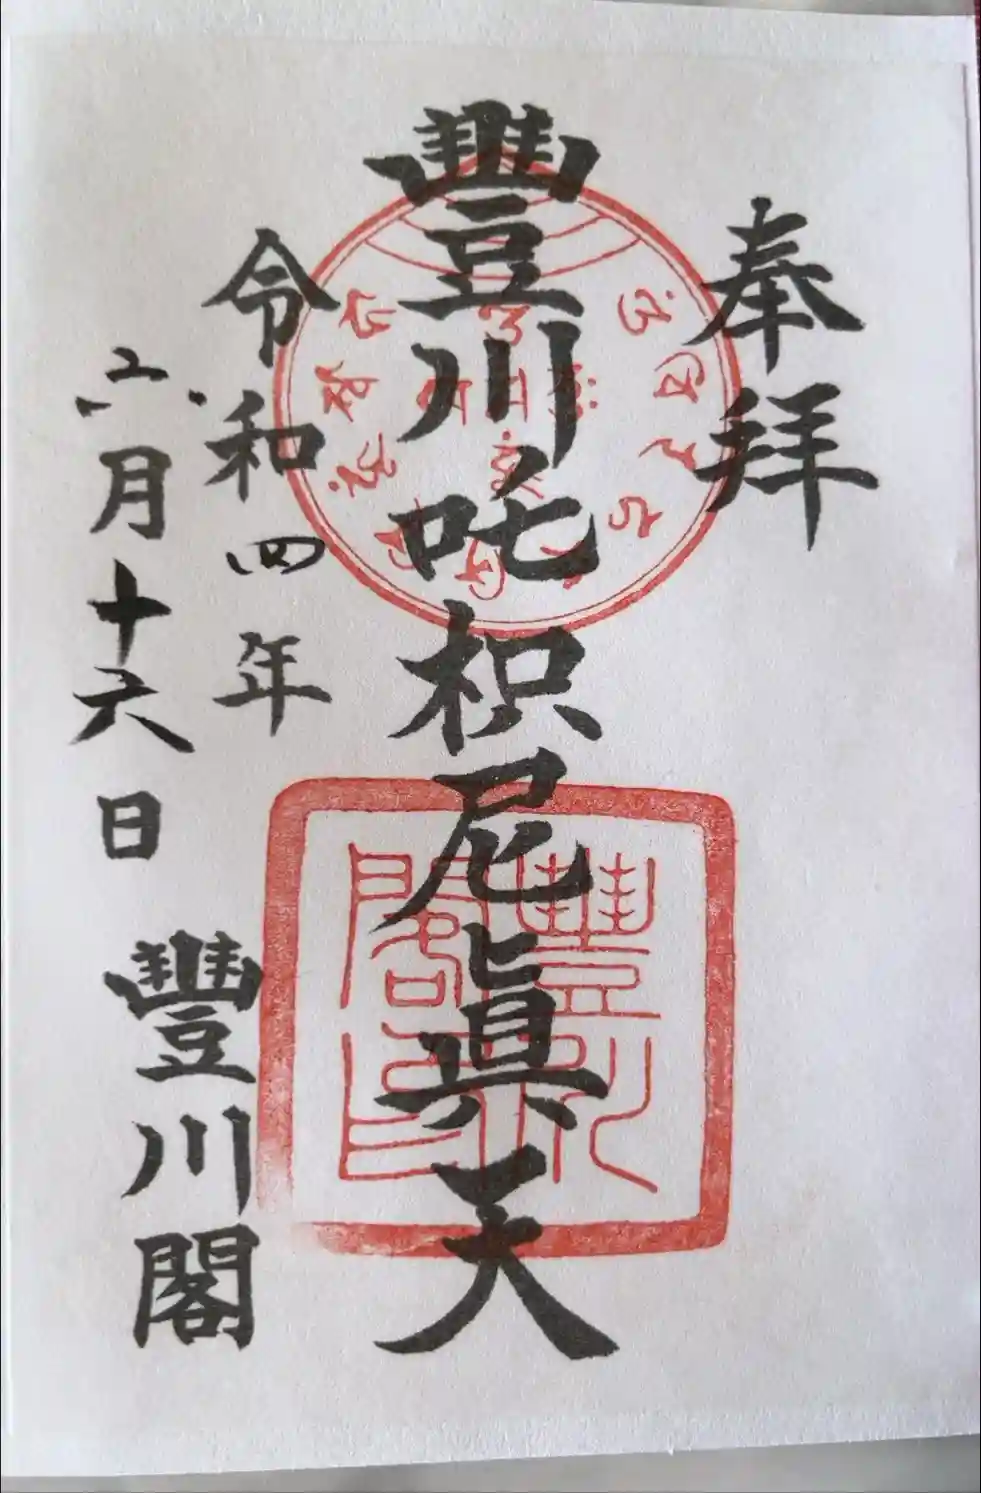 奉拝
豐川吒枳尼眞天
令和四年
六月十六日
豐川閣
豐川
閣印